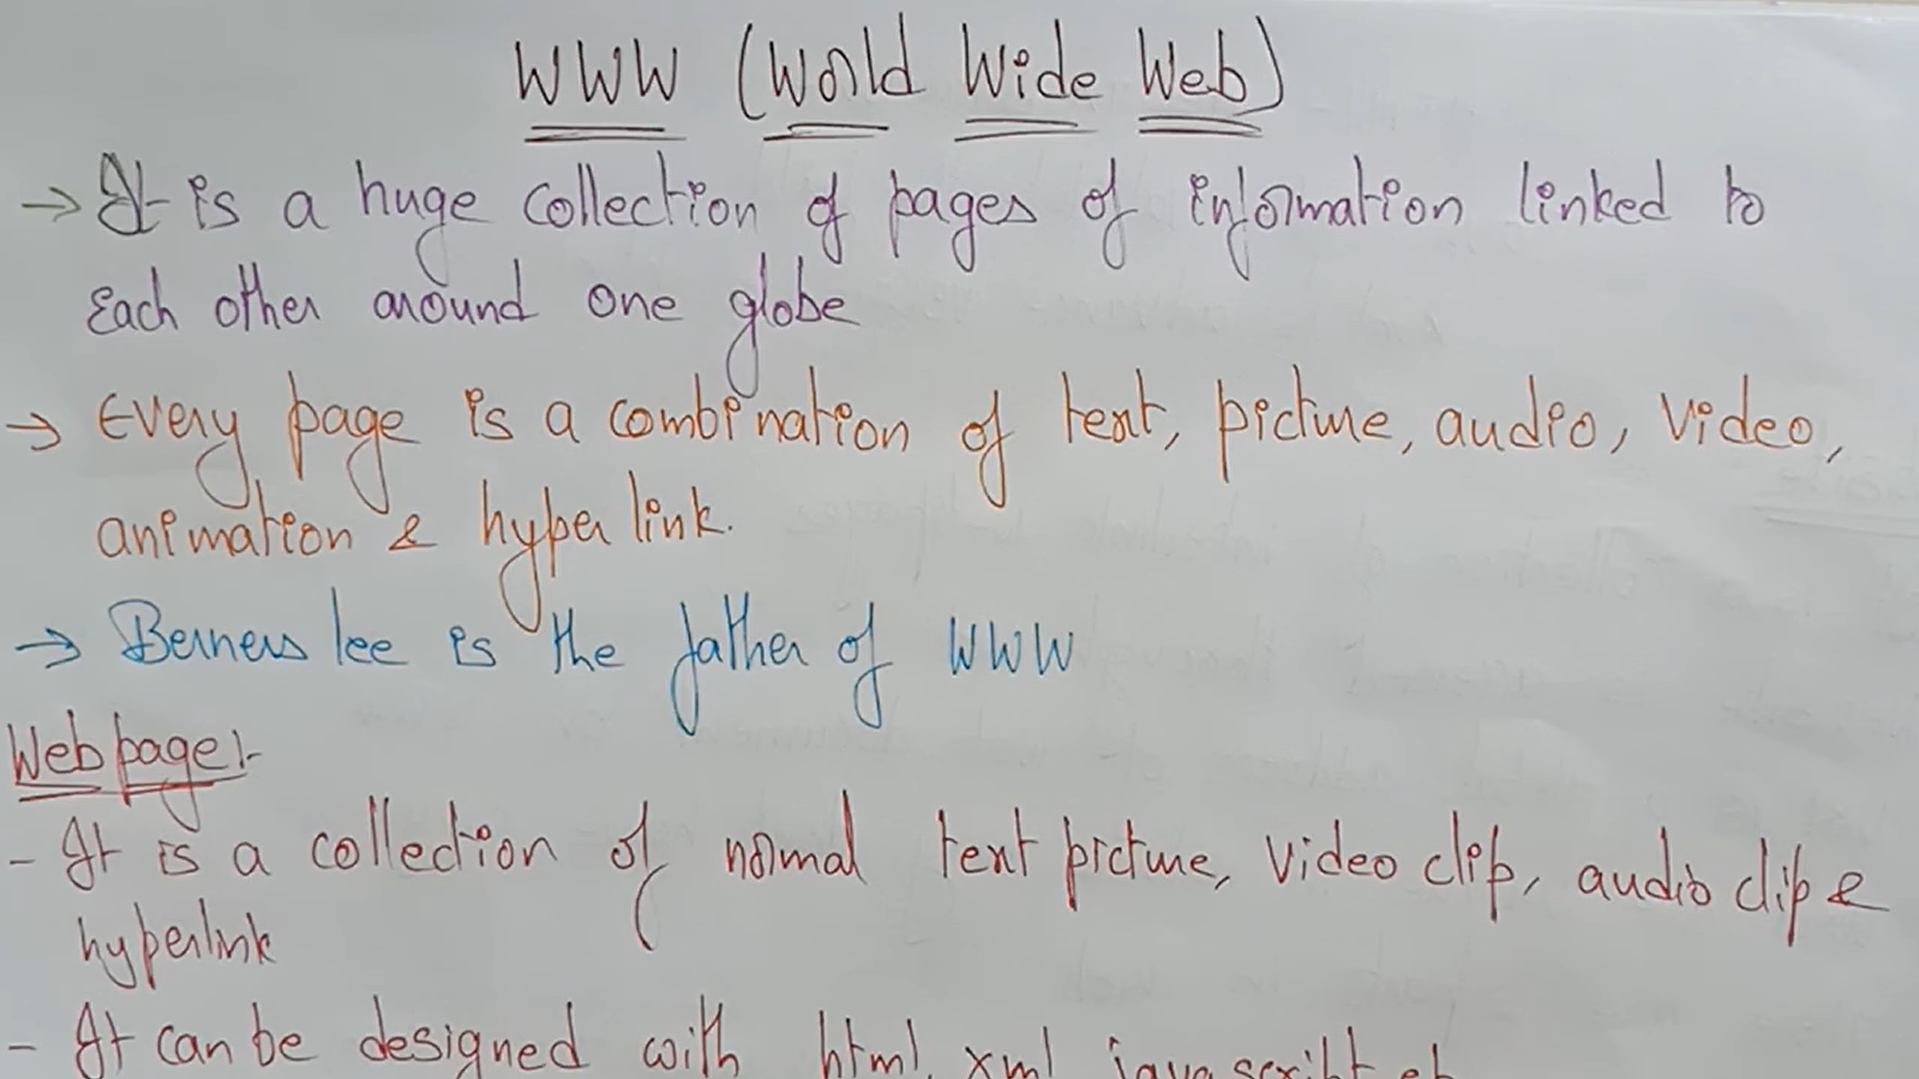 WWW (World Wide Web)
→ It is a huge collection of pages of information linked to
each other around one globe
→ Every page is a combination of text, picture, audio, video,
animation & hyper link.
→ Berners lee is the father of WWW
Web page:-
- It is a collection of normal text picture, video clip, audio clip &
hyperlink
- It can be designed with html, xml javascript et